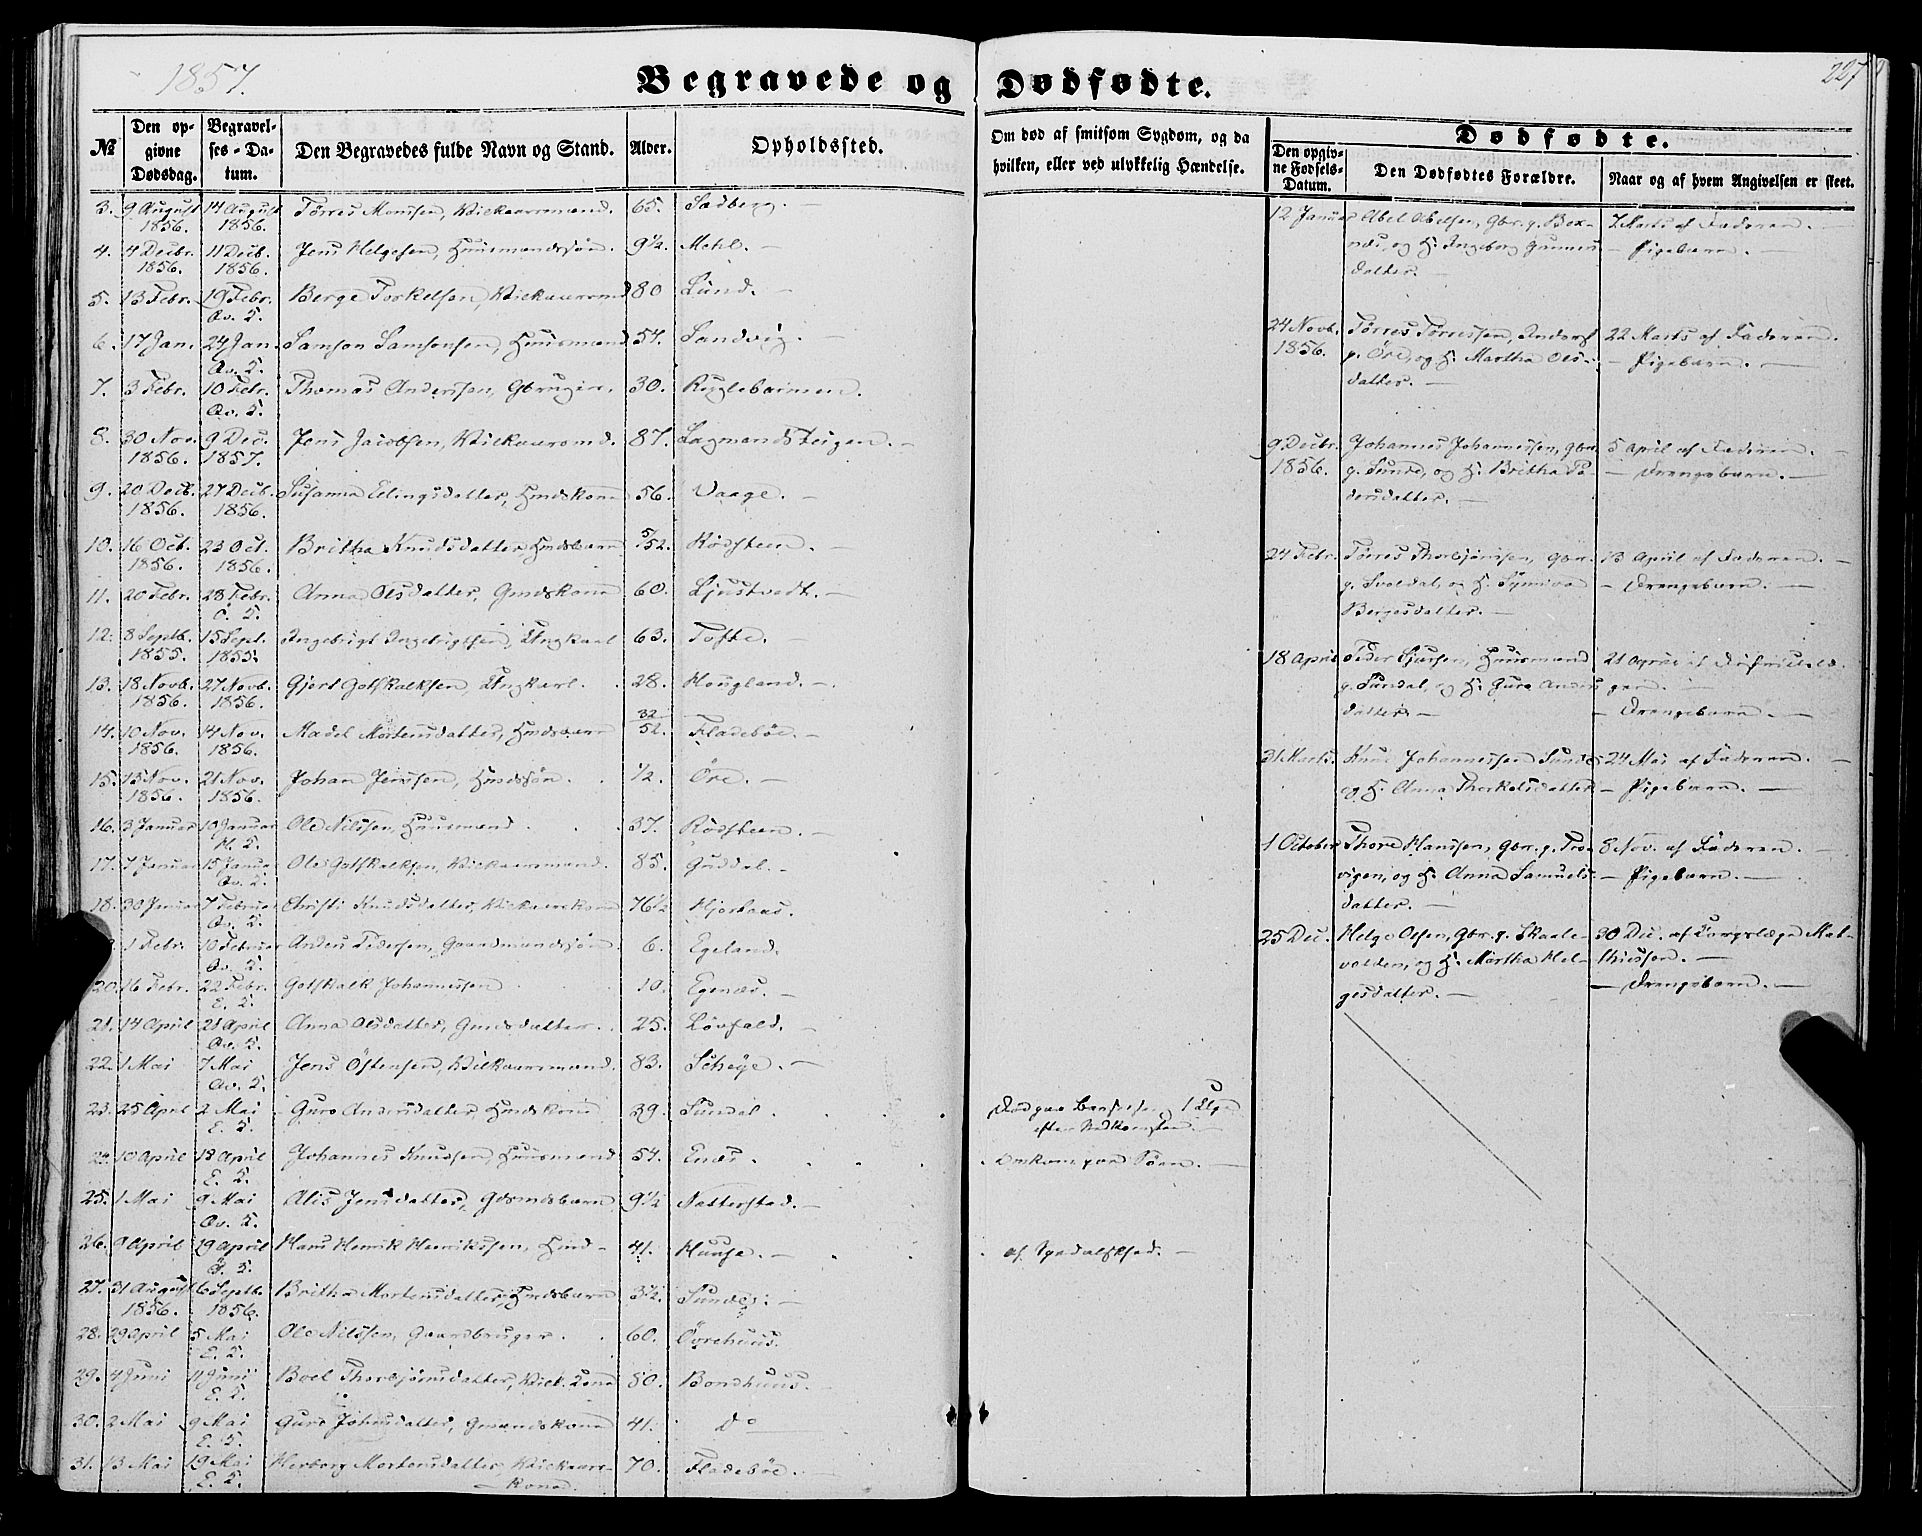 1857.
Begravede og Dødfødte.
227
№
Den opgivne Dødsdag.
Begravelses-Datum.
Den Begravedes fulde Navn og Stand.
Alder.
Opholdssted.
Om død af smitsom Sygdom, og da hvilken, eller ved ulykkelig Hændelse.
Dødfødte.
Den opgivne Fødsels-Datum.
Den Dødfødtes Forældre.
Naar og af hvem Angivelsen er skeet.
3. 9 August 14 August Tørres Monssen, Kiekaarsmand. 65. Sædberg. —
1856. 1856.
4. 4 Decbr. 11 Decb. Jens Helgesen, Huusmandssøn. 9½. Mehl. —
1856. 1856.
5. 13 Febr. 19 Febr. Berge Torkelsen, Kiekaarsmd 80 Lund. —
Qv. S.
6. 17 Jan. 24 Jan. Samson Samsonsen, Huusmand 54. Sandvig. —
Qv. S.
7. 3 Febr. 10 Febr. Thomas Anderssen, Gbruger. 30.
Qv. S.
8. 30 Nov. 9 Dec. Jens Jacobsen, Kiekaarsmd. 87. Lagmandsteigen. —
1856. 1857.
9. 20 Decb. 27 Decb. Susanna Elingsdatter, Hmdskone 56. Vaage. —
1856. 1856.
10. 16 Oct. 23 Oct. Britha Knudsdatter, Hmdsbarn 5/52. Rødsteen. —
1856. 1856.
11. 20 Febr. 28 Febr. Anna Olsdatter, Gmdskone 60. Ljustvedt. —
Ö. S.
12. 8 Septb. 15 Sept. Ingebrigt Ingebrigtsen, Ungkarl 63. Tofte. —
1855. 1855.
13. 18 Novb. 27 Novb. Gjert Gotskalksen, Ungkarl. 28. Hougland. —
1856. 1856.
14. 10 Nov. 14 Nov. Madel Mortensdatter, Hmdsbarn 32/52. Fladebøe. —
1856. 1856.
15. 13 Nov. 21 Nov. Johan Jenssen, Hmdssøn. ½. Öre. —
1856. 1856.
16. 3 Januar 10 Januar Ole Nilssen, Huusmand. 37. Rødsteen. —
H. S.
17. 7 Januar 15 Januar Ole Gotskalksen, Kiekaarsmand. 85. Guddal. —
Qv. S.
18. 30 Januar 7 Februar Christi Knudsdatter, Kiekaarskone 76½ Hjortaas.
Qv. S.
1 Febr. 10 Februar Anders Pedersen, Gaardmandssøn. 6. Egeland.
Qv. S.
20. 16 Febr. 22 Febr. Gotskalk Johannessen 10. Egenæs. —
E. S.
21. 14 April 21 April Anna Olsdatter, Gmdsdatter. 25. Løvfald. —
Qv. S.
22. 1 Mai 7 Mai Jens Östensen, Kiekaarsmand. 83. Schøye. —
Qv. S.
23. 25 April 2 Mai Guro Andersdatter, Hmdskone 39. Sundal.
efter Nedkomsten. —
E. S.
24. 10 April 18 April Johannes Knudsen, Huusmand 54. Enæs. Omkom paa Søen. —
E. S.
25. 1 Mai 9 Mai Alis Jensdatter, Gdsmdsbarn 9½ Natterstad. —
Qv. S.
26. 9 April 19 April Hans Henrik Henrikssen, Hmd — 41. Huuse. — af Spedalskhed. —
Ö. S.
27. 31 August 6 Septb. Britha Mortensdatter, Hmdsbarn 3½. Sunde. —
1856. 1856.
28. 29 April 5 Mai Ole Nilssen, Gaardbruger. 60. Övrehuus.
E. S.
29. 4 Juni 11 Juni Boel Thorbjørnsdatter, Kiek. Kone 80. Bondhuus. —
E. S.
30. 2 Mai 9 Mai Guro Johnsdatter, Gmandskone 41. Do —
E. S.
31. 13 Mai 19 Mai Herborg Mortensdatter, Kiekaars- 70. Fladebøe. —
E. S. kone.
12 Januar Abel Abelsen, Gbr. p. Bon- 7 Marts af Faderen. —
næs, og H. Ingeborg Gunners- — Pigebarn. —
datter. —
24 Novb. Tørres Tørressen, Inderst 22 Marts af Faderen.
1856. p. Öre, og H. Martha Ols- — Pigebarn. —
datter. —
9 Decbr. Johannes Johannessen, Gbr. 5 April af Faderen. —
1856. p. Sunde, og H. Britha Pe- — Drengebarn. —
dersdatter. —
24 Febr. Tørres Thorbjørnsen, Gbr. 13 April af Faderen. —
p. Svoldal, og H. Synniva — Drengebarn. —
Bergesdatter. —
18 April Peder Sjursen, Huusmand 21 April af
p. Sundal, og H. Guro Anders-
datter — — Drengebarn. —
31 Marts. Knud Johannessen Sunde 24 Mai af Faderen. —
og H. Anna Thorkelsdatter — Pigebarn. —
1 October Thore Hanssen, Gbr. p. Tro- 8 Nov. af Faderen. —
vigen, og H. Anna Samuels- — Pigebarn. —
datter. —
25 Dec. Helge Olsen, Gbr. p. Skaale- 30 Dec. af Korpslæge Mat-
volden, og H. Martha Hel- thiessen. —
gesdatter. — — Drengebarn. —